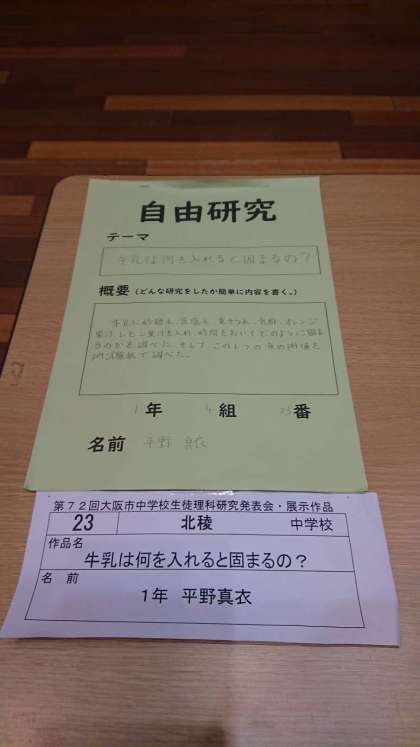 自由研究
テーマ
牛乳は何を入れると固まるの？
概要（どんな研究をしたか簡単に内容を書く。）
牛乳に砂糖水、食塩水、
食酢、オレンジ
レモン果汁を入れ、時間をおいてどのように固ま
るのかを調べた。そして、この
試験紙で調べた。
1年 4組 23番
名前 平野 真衣
第７２回大阪市中学校生徒理科研究発表会・展示作品
23 北稜 中学校
作品名
牛乳は何を入れると固まるの？
名 前
１年 平野真衣